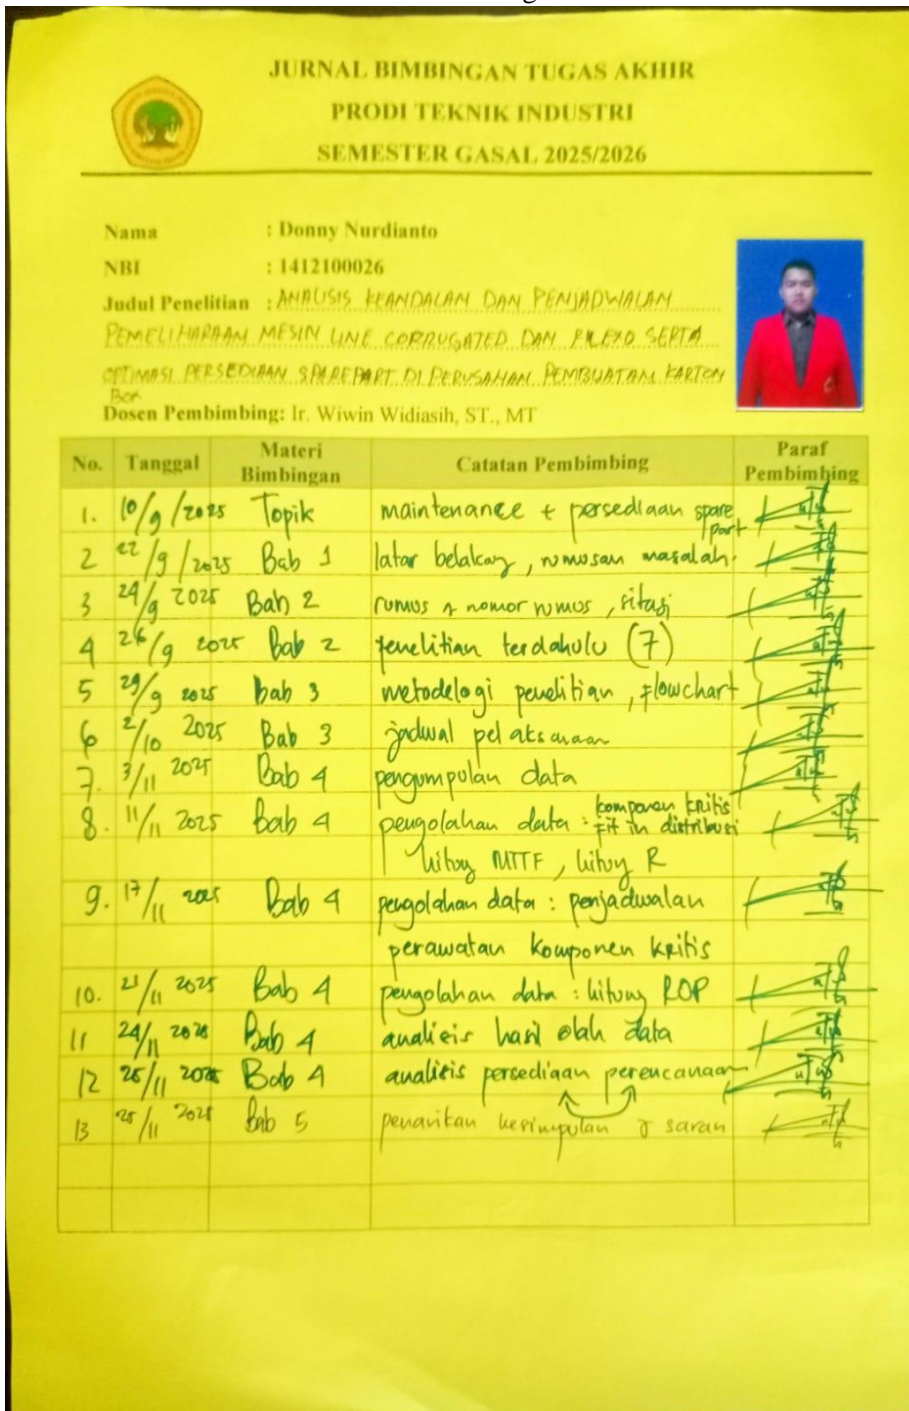 JURNAL BIMBINGAN TUGAS AKHIR
PRODI TEKNIK INDUSTRI
SEMESTER GASAL 2025/2026
Nama : Donny Nurdianto
NBI : 1412100026
Judul Penelitian : ANALISIS KEANDALAN DAN PENJADWALAN
PEMELIHARAAN MESIN LINE CORRUGATED DAN FLEXO SERTA
OPTIMASI PERSEDIAAN SPAREPART DI PERUSAHAN PEMBUATAN KARTON
BOX
Dosen Pembimbing: Ir. Wiwin Widiasih, ST., MT
No. Tanggal Materi Bimbingan Catatan Pembimbing Paraf Pembimbing
1. 10/9/2025 Topik maintenance + persediaan spare part
2 22/9/2025 Bab 1 latar belakang, rumusan masalah.
3 24/9 2025 Bab 2 rumus & nomor rumus, sitasi
4 26/9 2025 Bab 2 penelitian terdahulu (7)
5 29/9 2025 bab 3 metodelogi penelitian, flowchart
6 2/10 2025 Bab 3 jadwal pelaksanaan
7. 3/11 2025 Bab 4 pengumpulan data
8. 11/11 2025 Bab 4 pengolahan data : komponen kritis
fit in distribusi
hitung MTTF, hitung R
9. 17/11 2025 Bab 4 pengolahan data : penjadwalan
perawatan komponen kritis
10. 21/11 2025 Bab 4 pengolahan data : hitung ROP
11 24/11 2025 Bab 4 analisis hasil olah data
12 25/11 2025 Bab 4 analisis persediaan perencanaan
13 25/11 2025 Bab 5 penarikan kesimpulan & saran